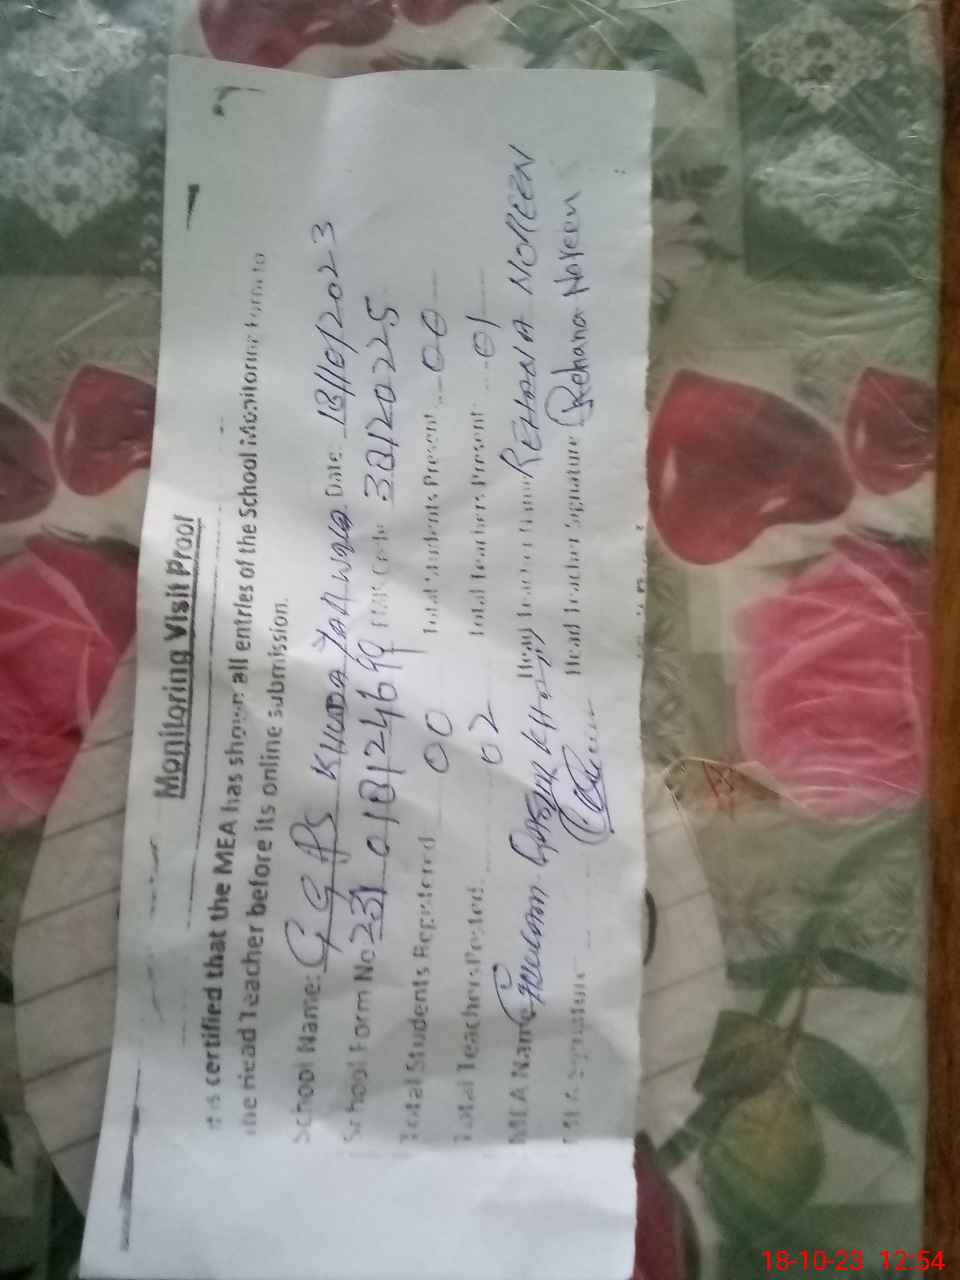 Monitoring Visit Proof
It is certified that the MEA has shown all entries of the School Monitoring Form to
the Head Teacher before its online submission.
School Name: GGPS KHUDA Date: 18/10/2023
School Form No 23101812469 EMIS Code 30120225
Total Students Registered 00 Total Students Present 00
Total Teachers Posted 02 Total Teachers Present 01
MEA Name Head Teacher Name REHANA NOREEN
MEA Signature Head Teacher Signature Rehana Noreen
18-10-23 12:54